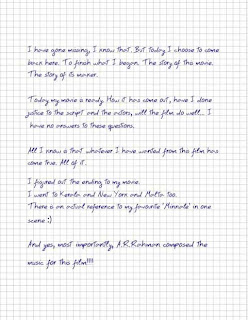 I have gone missing, I know that. But today I choose to come
back here. To finish what I began. The story of this movie.
The story of its maker.
Today my movie is ready. How it has come out, have I done
justice to the script and the actors, will the film do well... I
have no answers to these questions.
All I know is that whatever I have wanted from this film has
come true. All of it.
I figured out the ending to my movie.
I went to Kerala and New York and Malta too.
There is an actual reference to my favourite 'Minnale' in one
scene :)
And yes, most importantly, A.R.Rahman composed the
music for this film!!!!